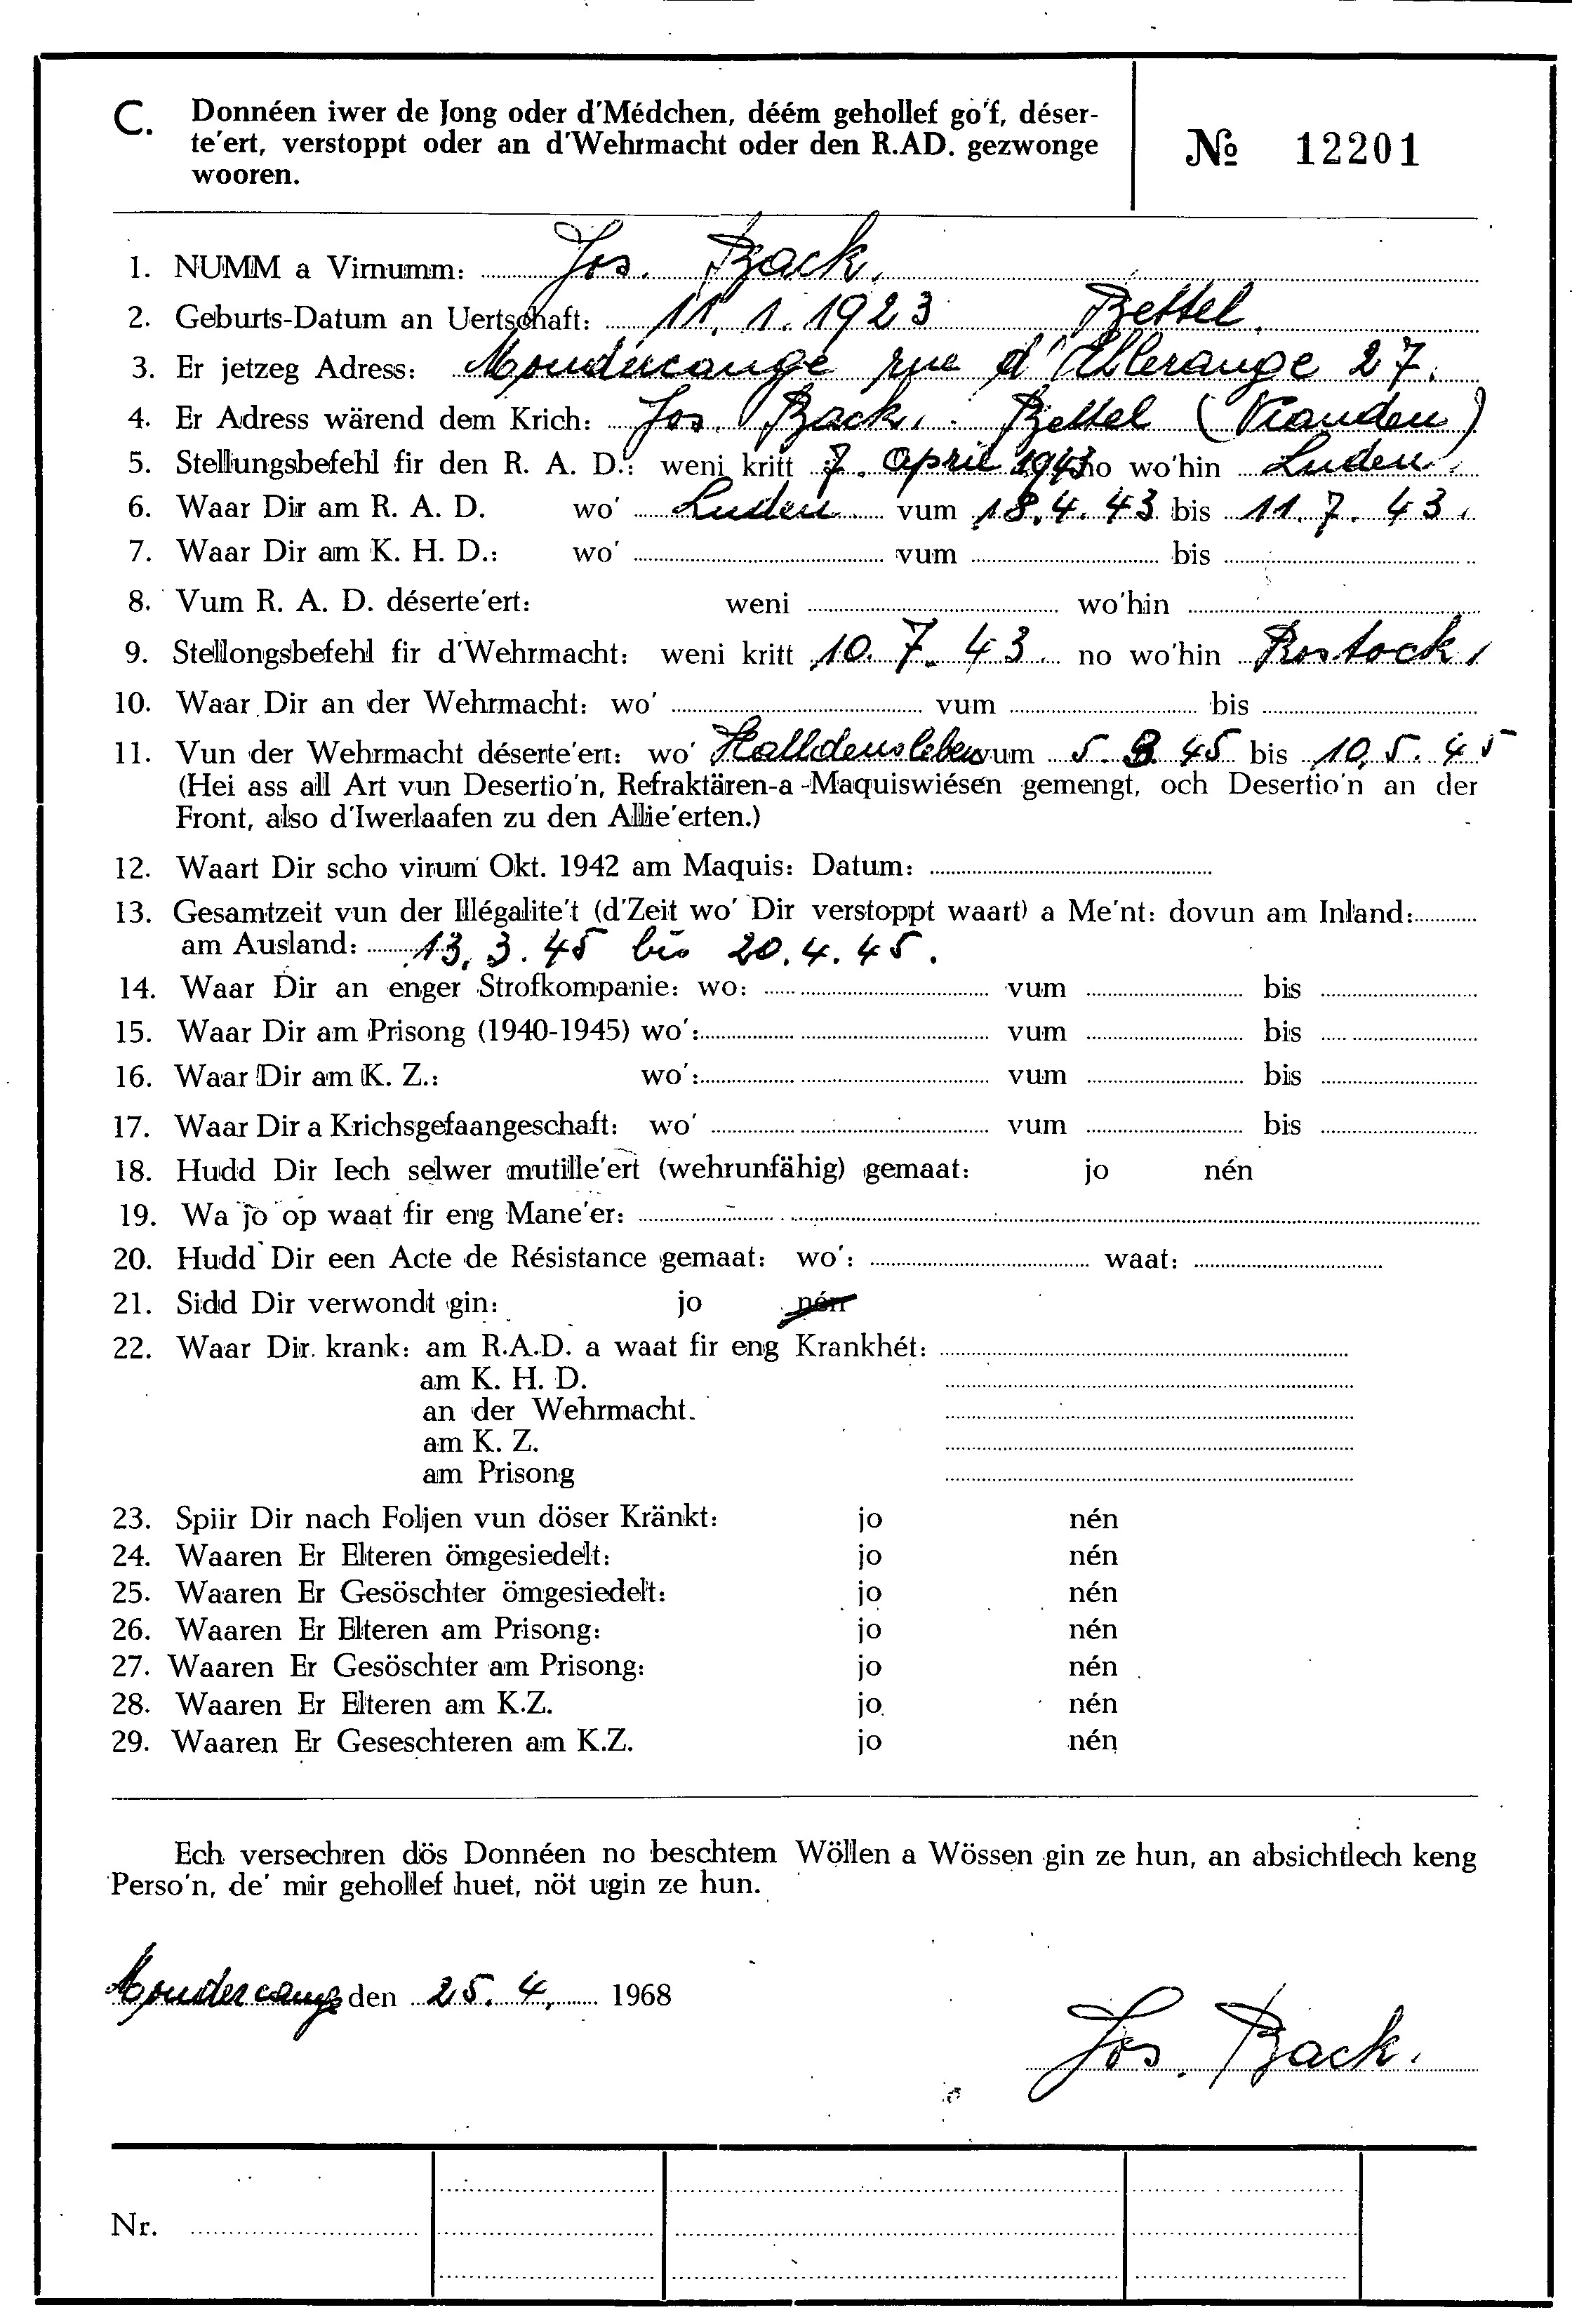 C. Donnéen iwer de Jong oder d'Médchen, déém gehollef go'f, déser-
te'ert, verstoppt oder an d'Wehrmacht oder den R.AD. gezwonge
wooren.
№ 12201
1. NUMM a Virnumm: Jos. Back.
2. Geburts-Datum an Uertschaft: 11. 1. 1923 Bettel.
3. Er jetzeg Adress: Mondercange rue d'Ehlerange 27.
4. Er Adress wärend dem Krich: Jos. Back. Bettel (Vianden)
5. Stellungsbefehl fir den R. A. D.: weni kritt 7. April 1943 no wo'hin Luden.
6. Waar Dir am R. A. D. wo' Luden vum 18.4.43 bis 11.7.43.
7. Waar Dir am K. H. D.: wo' vum bis
8. Vum R. A. D. déserte'ert: weni wo'hin
9. Stellongsbefehl fir d'Wehrmacht: weni kritt 10. 7. 43 no wo'hin Rostock.
10. Waar Dir an der Wehrmacht: wo' vum bis
11. Vun der Wehrmacht déserte'ert: wo' Halldensleben vum 5. 3. 45 bis 10. 5. 45
(Hei ass all Art vun Desertio'n, Refraktären-a-Maquiswiésen gemengt, och Desertio'n an der
Front, also d'Iwerlaafen zu den Allie'erten.)
12. Waart Dir scho virum Okt. 1942 am Maquis: Datum:
13. Gesamtzeit vun der Illégalite't (d'Zeit wo' Dir verstoppt waart) a Me'nt: dovun am Inland:
am Ausland: 13. 3. 45 bis 20. 4. 45.
14. Waar Dir an enger Strofkompanie: wo: vum bis
15. Waar Dir am Prisong (1940-1945) wo': vum bis
16. Waar Dir am K. Z.: wo': vum bis
17. Waar Dir a Krichsgefaangeschaft: wo' vum bis
18. Hudd Dir Iech selwer mutille'ert (wehrunfähig) gemaat: jo nén
19. Wa jo op waat fir eng Mane'er:
20. Hudd Dir een Acte de Résistance gemaat: wo': waat:
21. Sidd Dir verwondt gin: jo nén
22. Waar Dir krank: am R.A.D. a waat fir eng Krankhét:
am K. H. D.
an der Wehrmacht.
am K. Z.
am Prisong
23. Spiir Dir nach Foljen vun döser Kränkt: jo nén
24. Waaren Er Elteren ömgesiedelt: jo nén
25. Waaren Er Gesöschter ömgesiedelt: jo nén
26. Waaren Er Elteren am Prisong: jo nén
27. Waaren Er Gesöschter am Prisong: jo nén
28. Waaren Er Elteren am K.Z. jo nén
29. Waaren Er Geseschteren am K.Z. jo nén
Ech versechren dös Donnéen no beschtem Wöllen a Wössen gin ze hun, an absichtlech keng
Perso'n, de' mir gehollef huet, nöt ugin ze hun.
Mondercange den 25. 4. 1968
Jos. Back.
Nr.